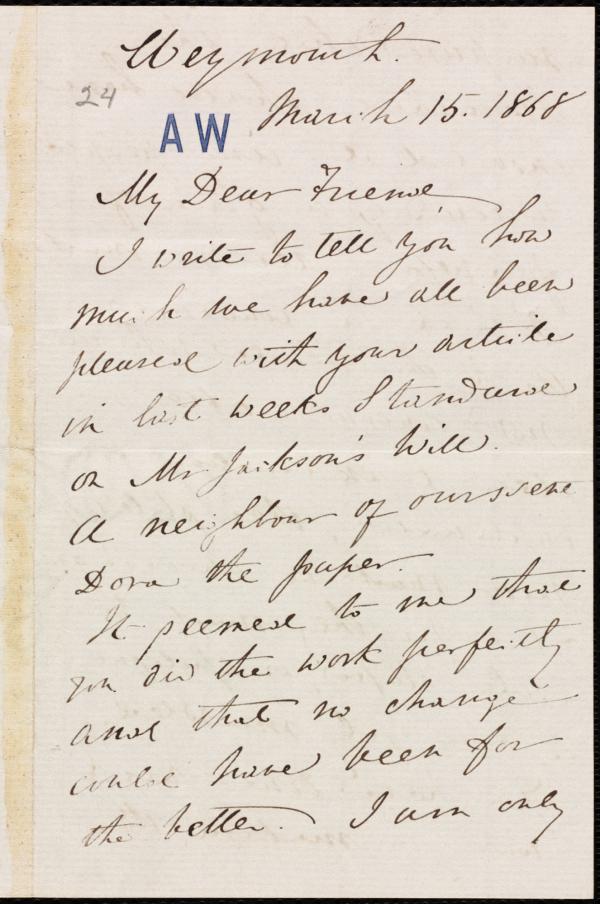 Weymouth.
24
AW March 15. 1868
My Dear Friend
I write to tell you how
much we have all been
pleased with your article
in last weeks Standard
on Mr Jackson's Will.
A neighbour of ours sent
Dora the paper.
It seemed to me that
you did the work perfectly
and that no change
could have been for
the better. I am only